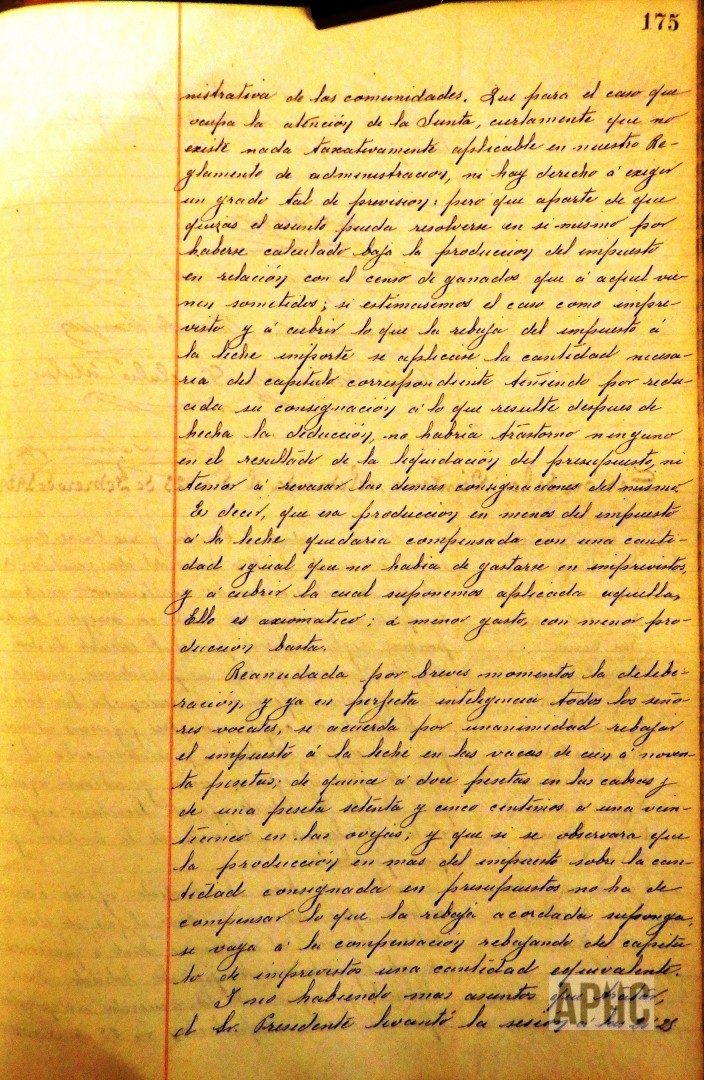 175
nistrativa de las comunidades. Que para el caso que
ocupa la atención de la Junta, ciertamente que no
existe nada taxativamente aplicable en nuestro Re-
glamento de administracion, ni hay derecho á exigir
un grado tal de prevision; pero que aparte de que
quizas el asunto pueda resolverse en si mismo por
haberse calculado baja la produccion del impuesto
en relación con el censo de ganados que á aquel vie-
nen sometidos; si estimasemos el caso como impre-
visto y á cubrir lo que la rebaja del impuesto á
la leche importe se aplicase la cantidad necesa-
ria del capitulo correspondiente teniendo por redu-
cida su consignación á lo que resulte despues de
hecha la deducción, no habria trastorno ninguno
en el resultado de la liquidación del presupuesto, ni
temor á revasar las demás consignaciones del mismo.
Es decir, que esa produccion en menos del impuesto
á la leche quedaria compensada con una canti-
dad igual que no habia de gastarse en imprevistos,
y á cubrir la cual suponemos aplicada aquella.
Ello es axiomatico; á menor gasto, con menor pro-
duccion basta.
Reanudada por breves momentos la delibe-
ración, y ya en perfecta inteligencia todos los seño-
res vocales, se acuerda por unanimidad rebajar
el impuesto á la leche en las vacas de cien á noven-
ta pesetas; de quince á doce pesetas en las cabras y
de una peseta setenta y cinco centimos a una vein-
ticinco en las ovejas; y que si se observara que
la producción en mas del impuesto sobre la can-
tidad consignada en presupuestos no ha de
compensar lo que la rebaja acordada suponga,
se vaya á la compensación rebajando del capitu-
lo de imprevistos una cantidad equivalente.
Y no habiendo mas asuntos que tratar,
el Sr. Presidente levantó la sesion á las
APHC